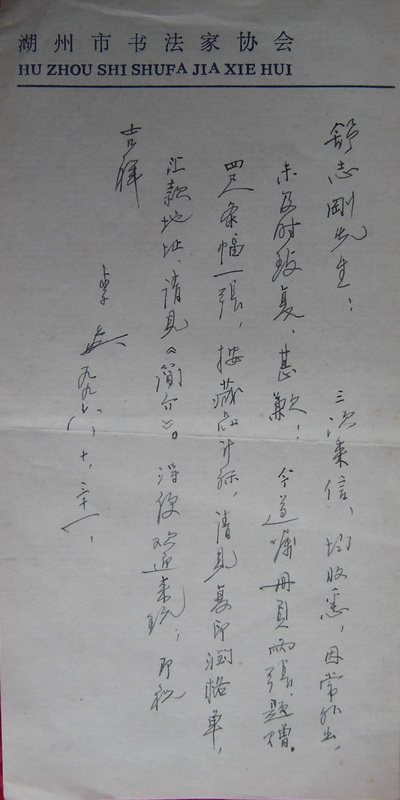 湖州市书法家协会
HU ZHOU SHI SHUFA JIA XIE HUI
舒志刚先生：
三次来信，均收悉，因常外出，
未及时致复，甚歉！今遵嘱册页两張，题赠。
四尺条幅一張，按藏品计标，请见复印润格单，
汇款地址，请见《简介》。得便欢迎来玩；即祝
吉祥
一九九六，十，二十一，